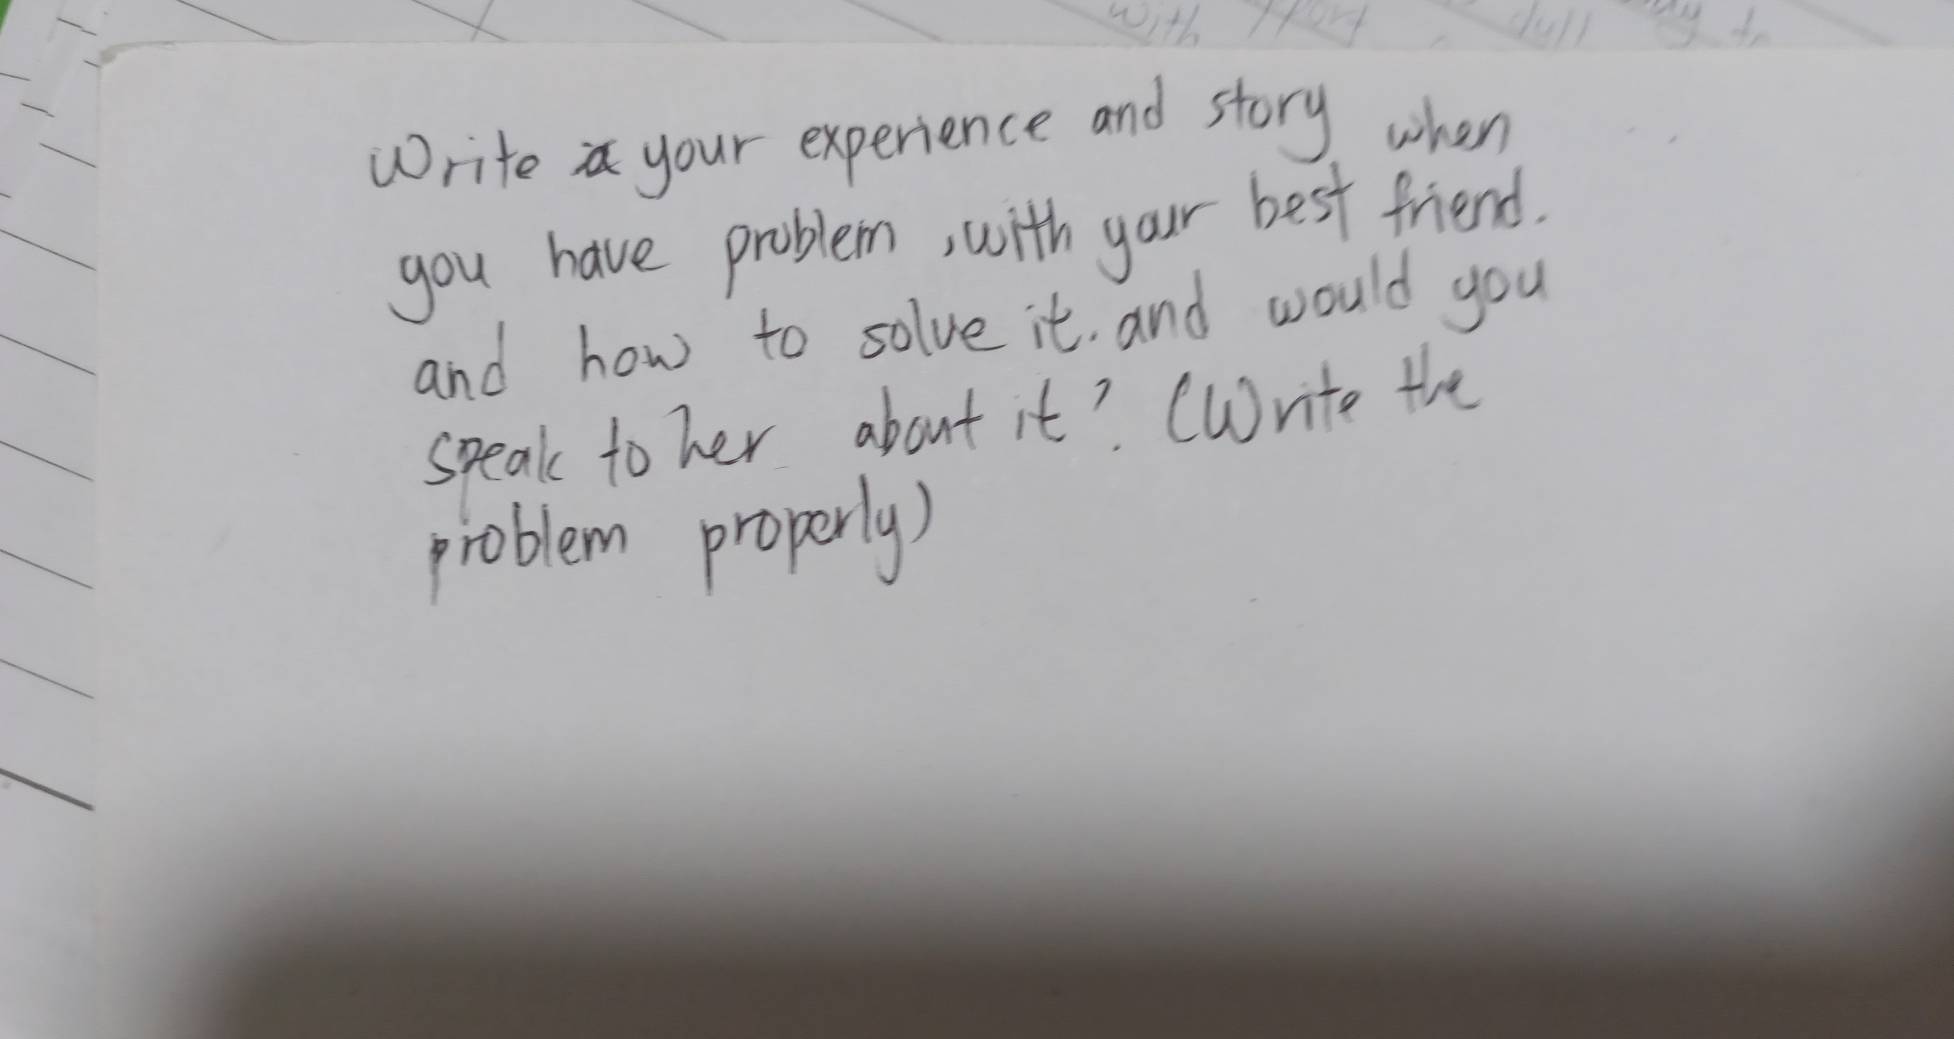 with
full
Write a your experience and story when
you have problem, with your best friend.
and how to solve it. and would you
speak to her about it? (Write the
problem properly)